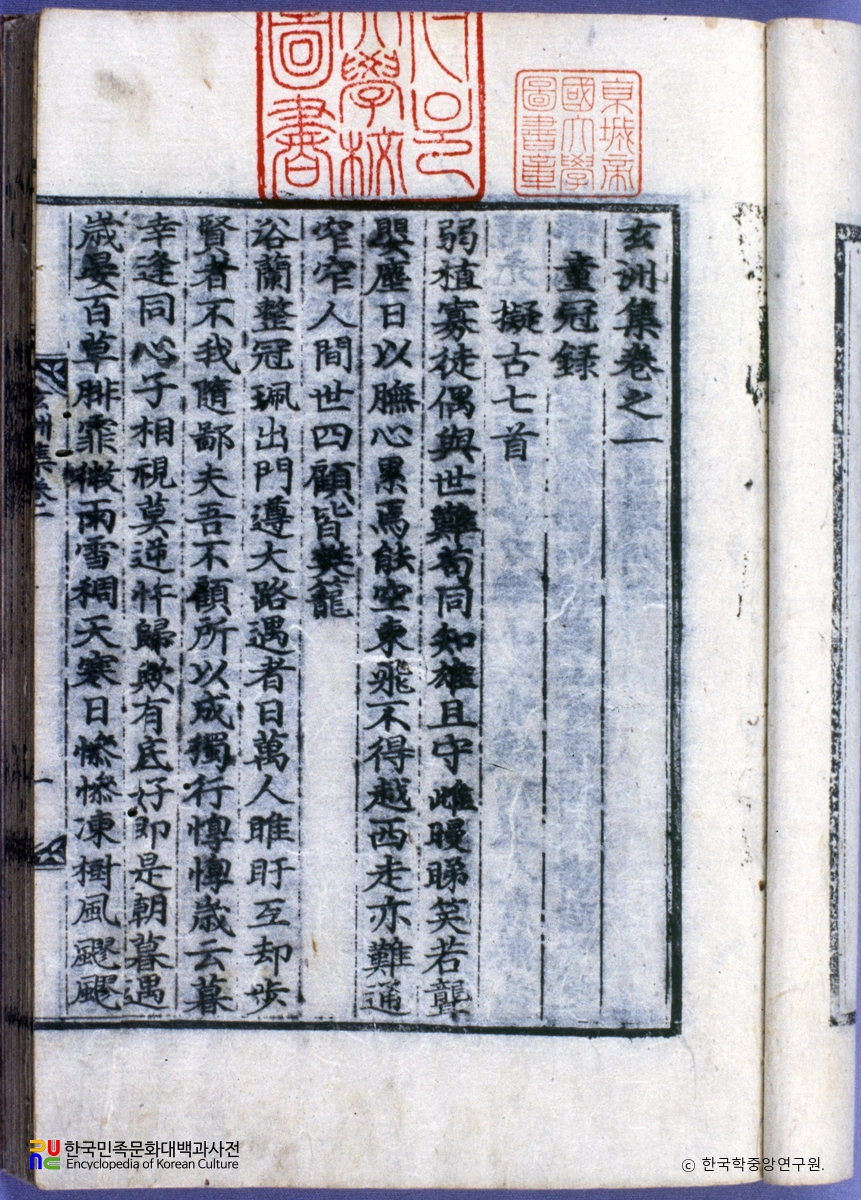 大學校圖書
京城帝國大學圖書章
玄洲集卷之一
童冠錄
擬古七首
弱植寡徒偶與世難苟同知雄且守雌睇笑若聾
嬰塵日以膴心累焉能空東飛不得越西走亦難通
窄窄人間世四顧皆樊籠
浴蘭整冠珮出門遵大路遇者日萬人睢盱互却步
賢者不我隨鄙夫吾不顧所以成獨行惸惸歲云暮
幸逢同心子相視莫逆忤歸歟有底好即是朝暮遇
歲晏百草腓霏微雨雪稠天寒日慘慘凍樹風飂飂
玄洲集卷一
一
한국민족문화대백과사전
Encyclopedia of Korean Culture
ⓒ 한국학중앙연구원.